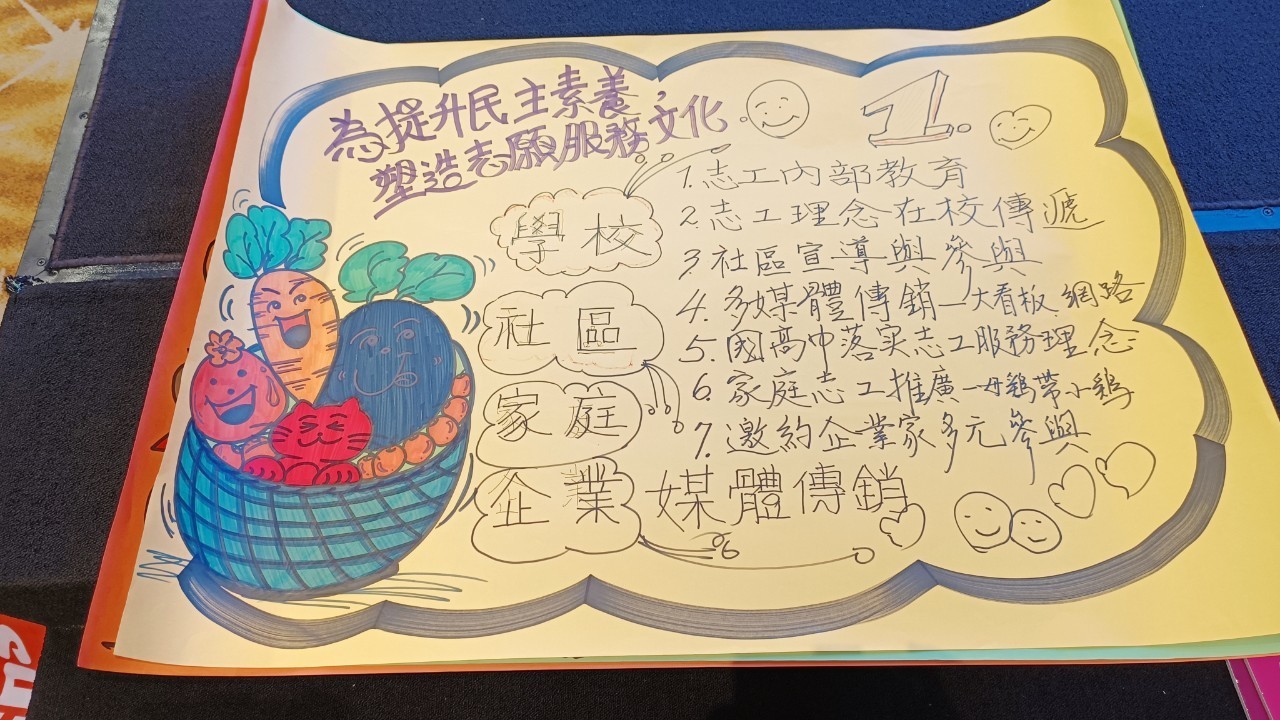 為提升民主素養，
塑造志願服務文化
1
1.志工內部教育
2.志工理念在校傳遞
3.社區宣導與參與
4.多媒體傳銷—大看板網路
5.國高中落実志工服務理念
6.家庭志工推廣—母鷄帶小鷄
7.邀約企業家多元參與
學校
社區
家庭
企業
媒體傳銷